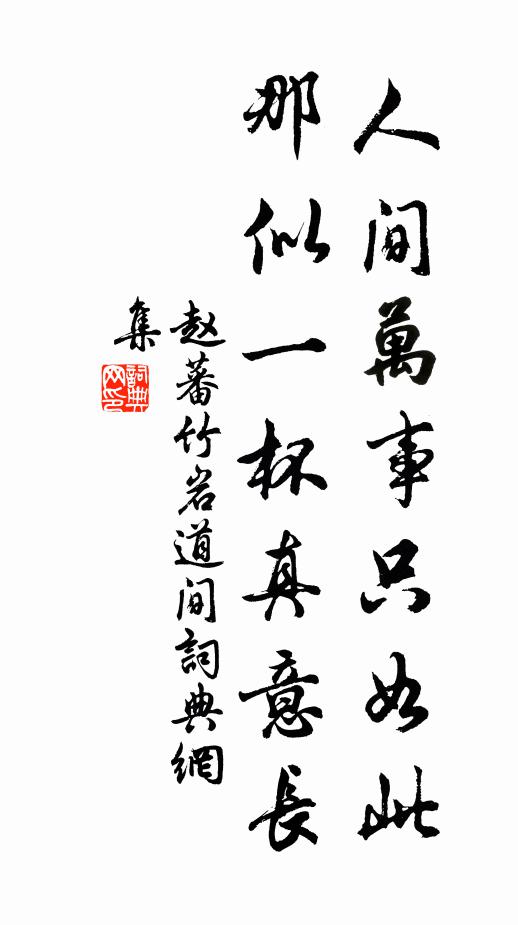 人间萬事只如此
那似一杯真意長
赵蕃竹岩道间詞典網
集
詞典
网印